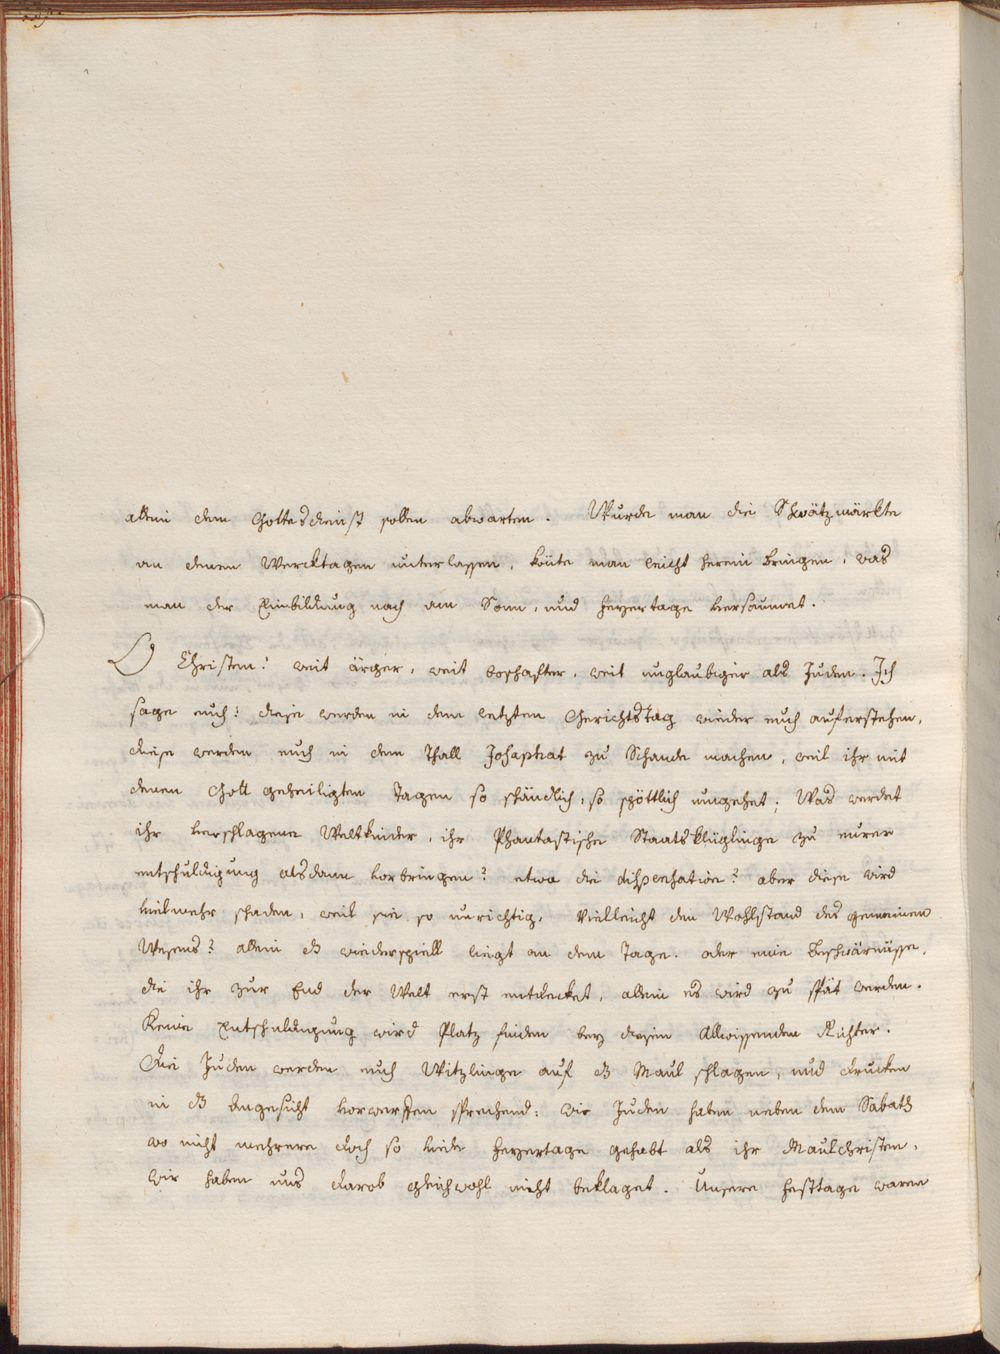 allein dem Gottesdienst sollen abwarten. Wurde man die Schwätzmärkte
an denen Wercktagen unterlassen, könte man leicht herein bringen, was
man der Einbildung nach am Sonn, und feyertage versaumet.
O Christen! weit ärger, weit boshafter, weit unglaubiger als Juden. Ich
sage euch: diese werden in dem letzten Gerichtstag wieder euch auferstehen,
diese werden euch in dem Thall Josaphat zu Schande machen, weil ihr mit
denen Gott geheiligten Tagen so schändlich, so spöttlich umgehet; Was werdet
ihr verschlagene Weltkinder, ihr Phantastische Staatsklüglinge zu eurer
entschuldigung alsdann vorbringen? etwa die dispensation? aber diese wird
vielmehr schaden, weil sie so unrichtig, Vielleicht den Wohlstand des gemeinen
Wesens? allein das wiederspiell liegt an dem Tage. oder eine Beschwärnüsse,
die ihr zur End der Welt erst entdecket, allein es wird zu spät werden.
Keine Entschuldigung wird Platz finden bey diesem Allwissenden Richter.
Die Juden werden euch Witzlinge auf das Maul schlagen, und drucken
in das Angesicht vorwerffen sprechend: wir Juden haben neben dem Sabath
wo nicht mehrere doch so viele feyertage gehabt als ihr Maulchristen,
wir haben uns darob gleichwohl nicht beklaget. Unsere festtage waren